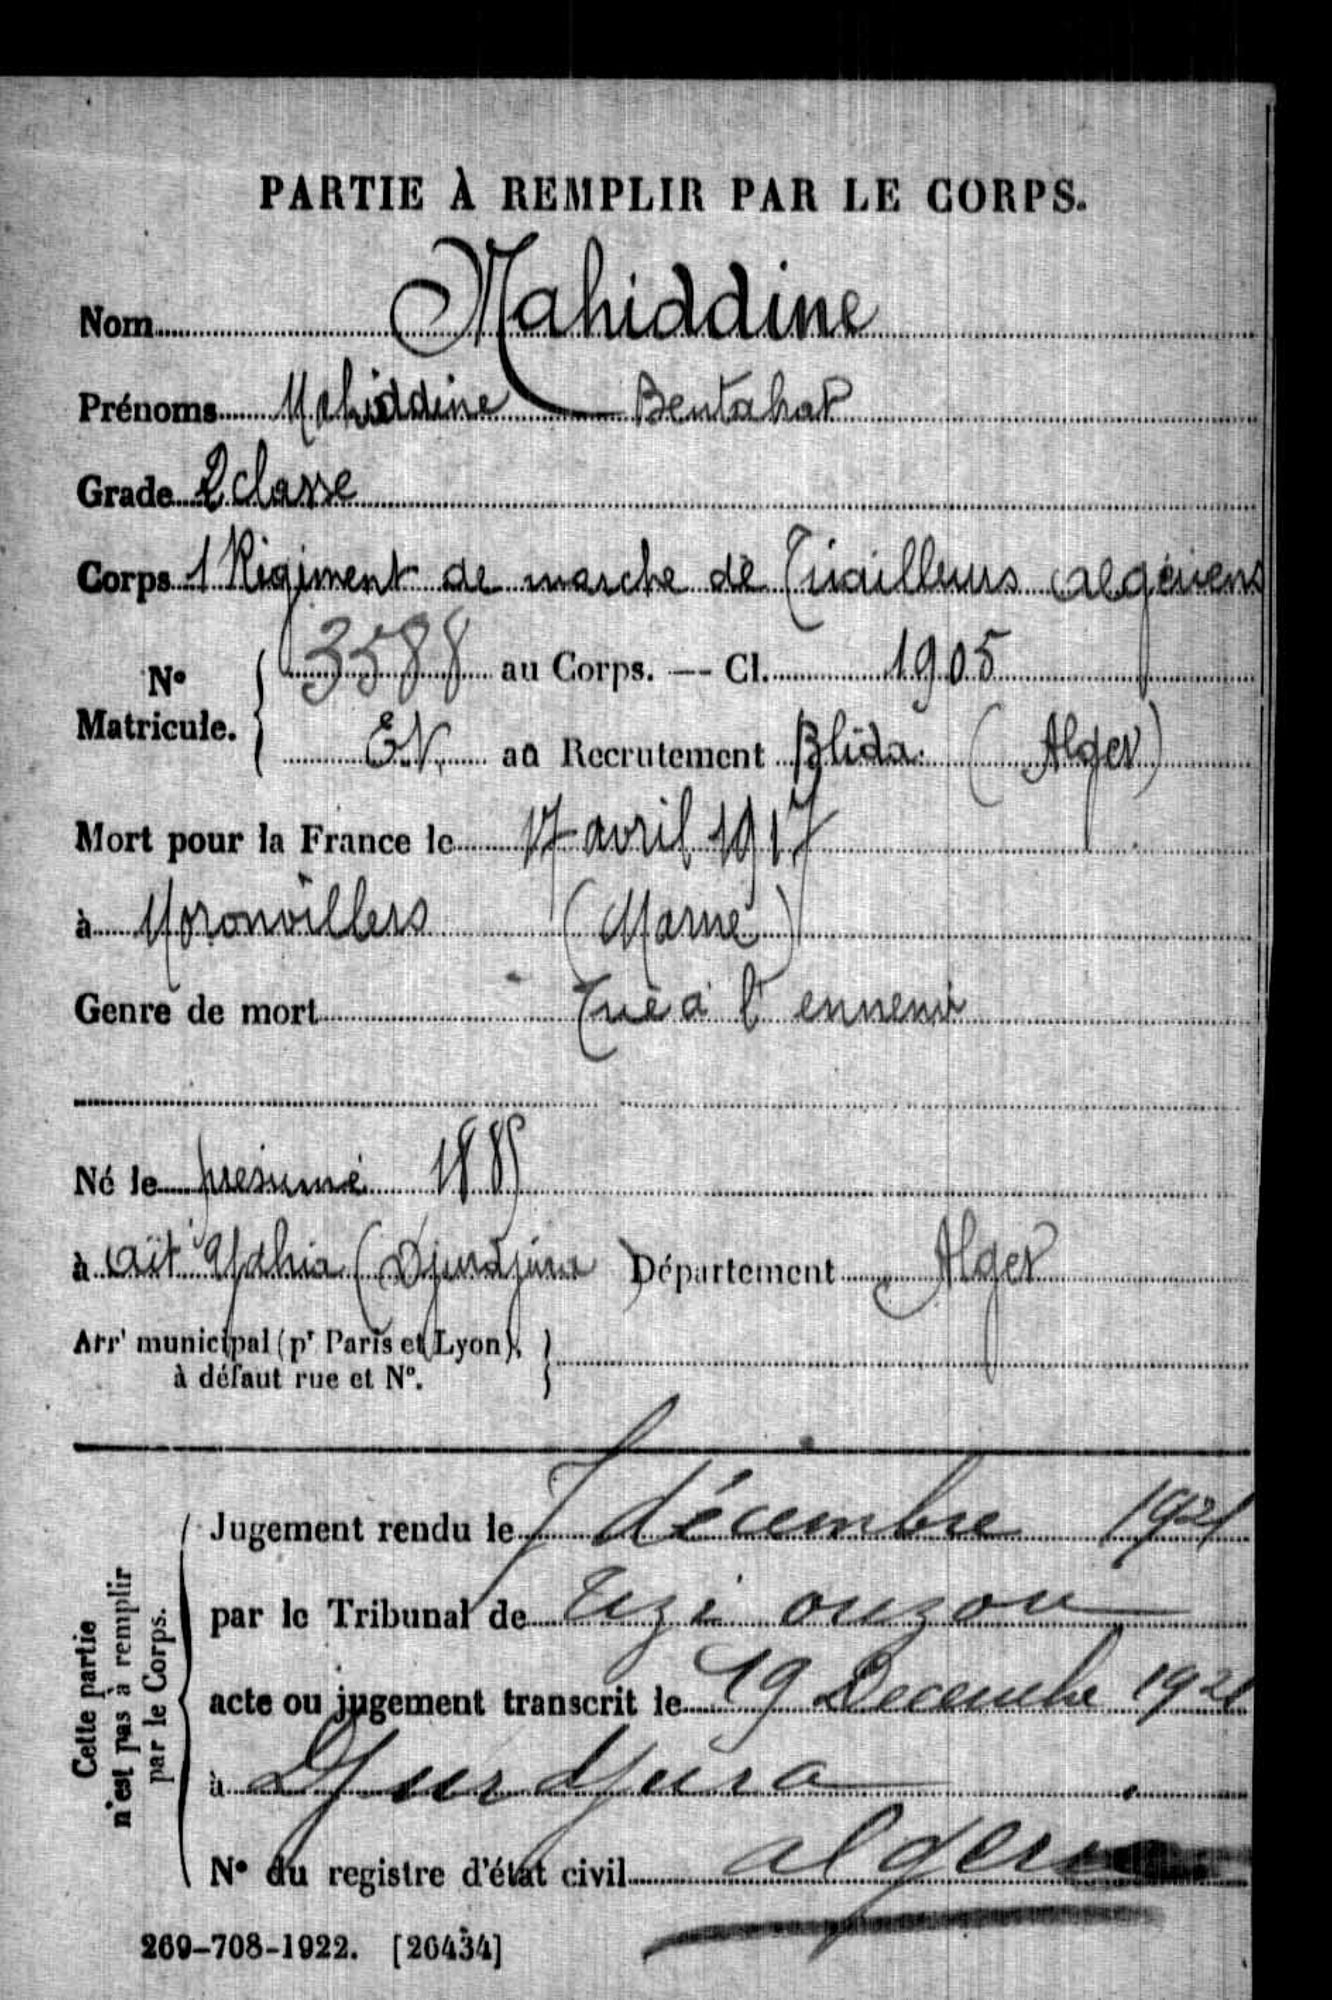 PARTIE À REMPLIR PAR LE CORPS.
Nom Mahiddine
Prénoms Mahiddine Bentahar
Grade 2 classe
Corps 1 Régiment de marche de Tirailleurs algériens
N° Matricule. 3588 au Corps. — Cl. 1905
EV. au Recrutement Blida (Alger)
Mort pour la France le 17 avril 1917
à Moronvillers (Marne)
Genre de mort Tué à l'ennemi
Né le présumé 1885
à Aït Yahia (Djurdjura) Département Alger
Arr' municipal (pr Paris et Lyon),
à défaut rue et N°.
Cette partie n'est pas à remplir par le Corps.
Jugement rendu le 7 décembre 1921
par le Tribunal de Tizi ouzou
acte ou jugement transcrit le 19 Decembre 1921
à Djurdjura
N° du registre d'état civil algerie
269-708-1922. [26434]